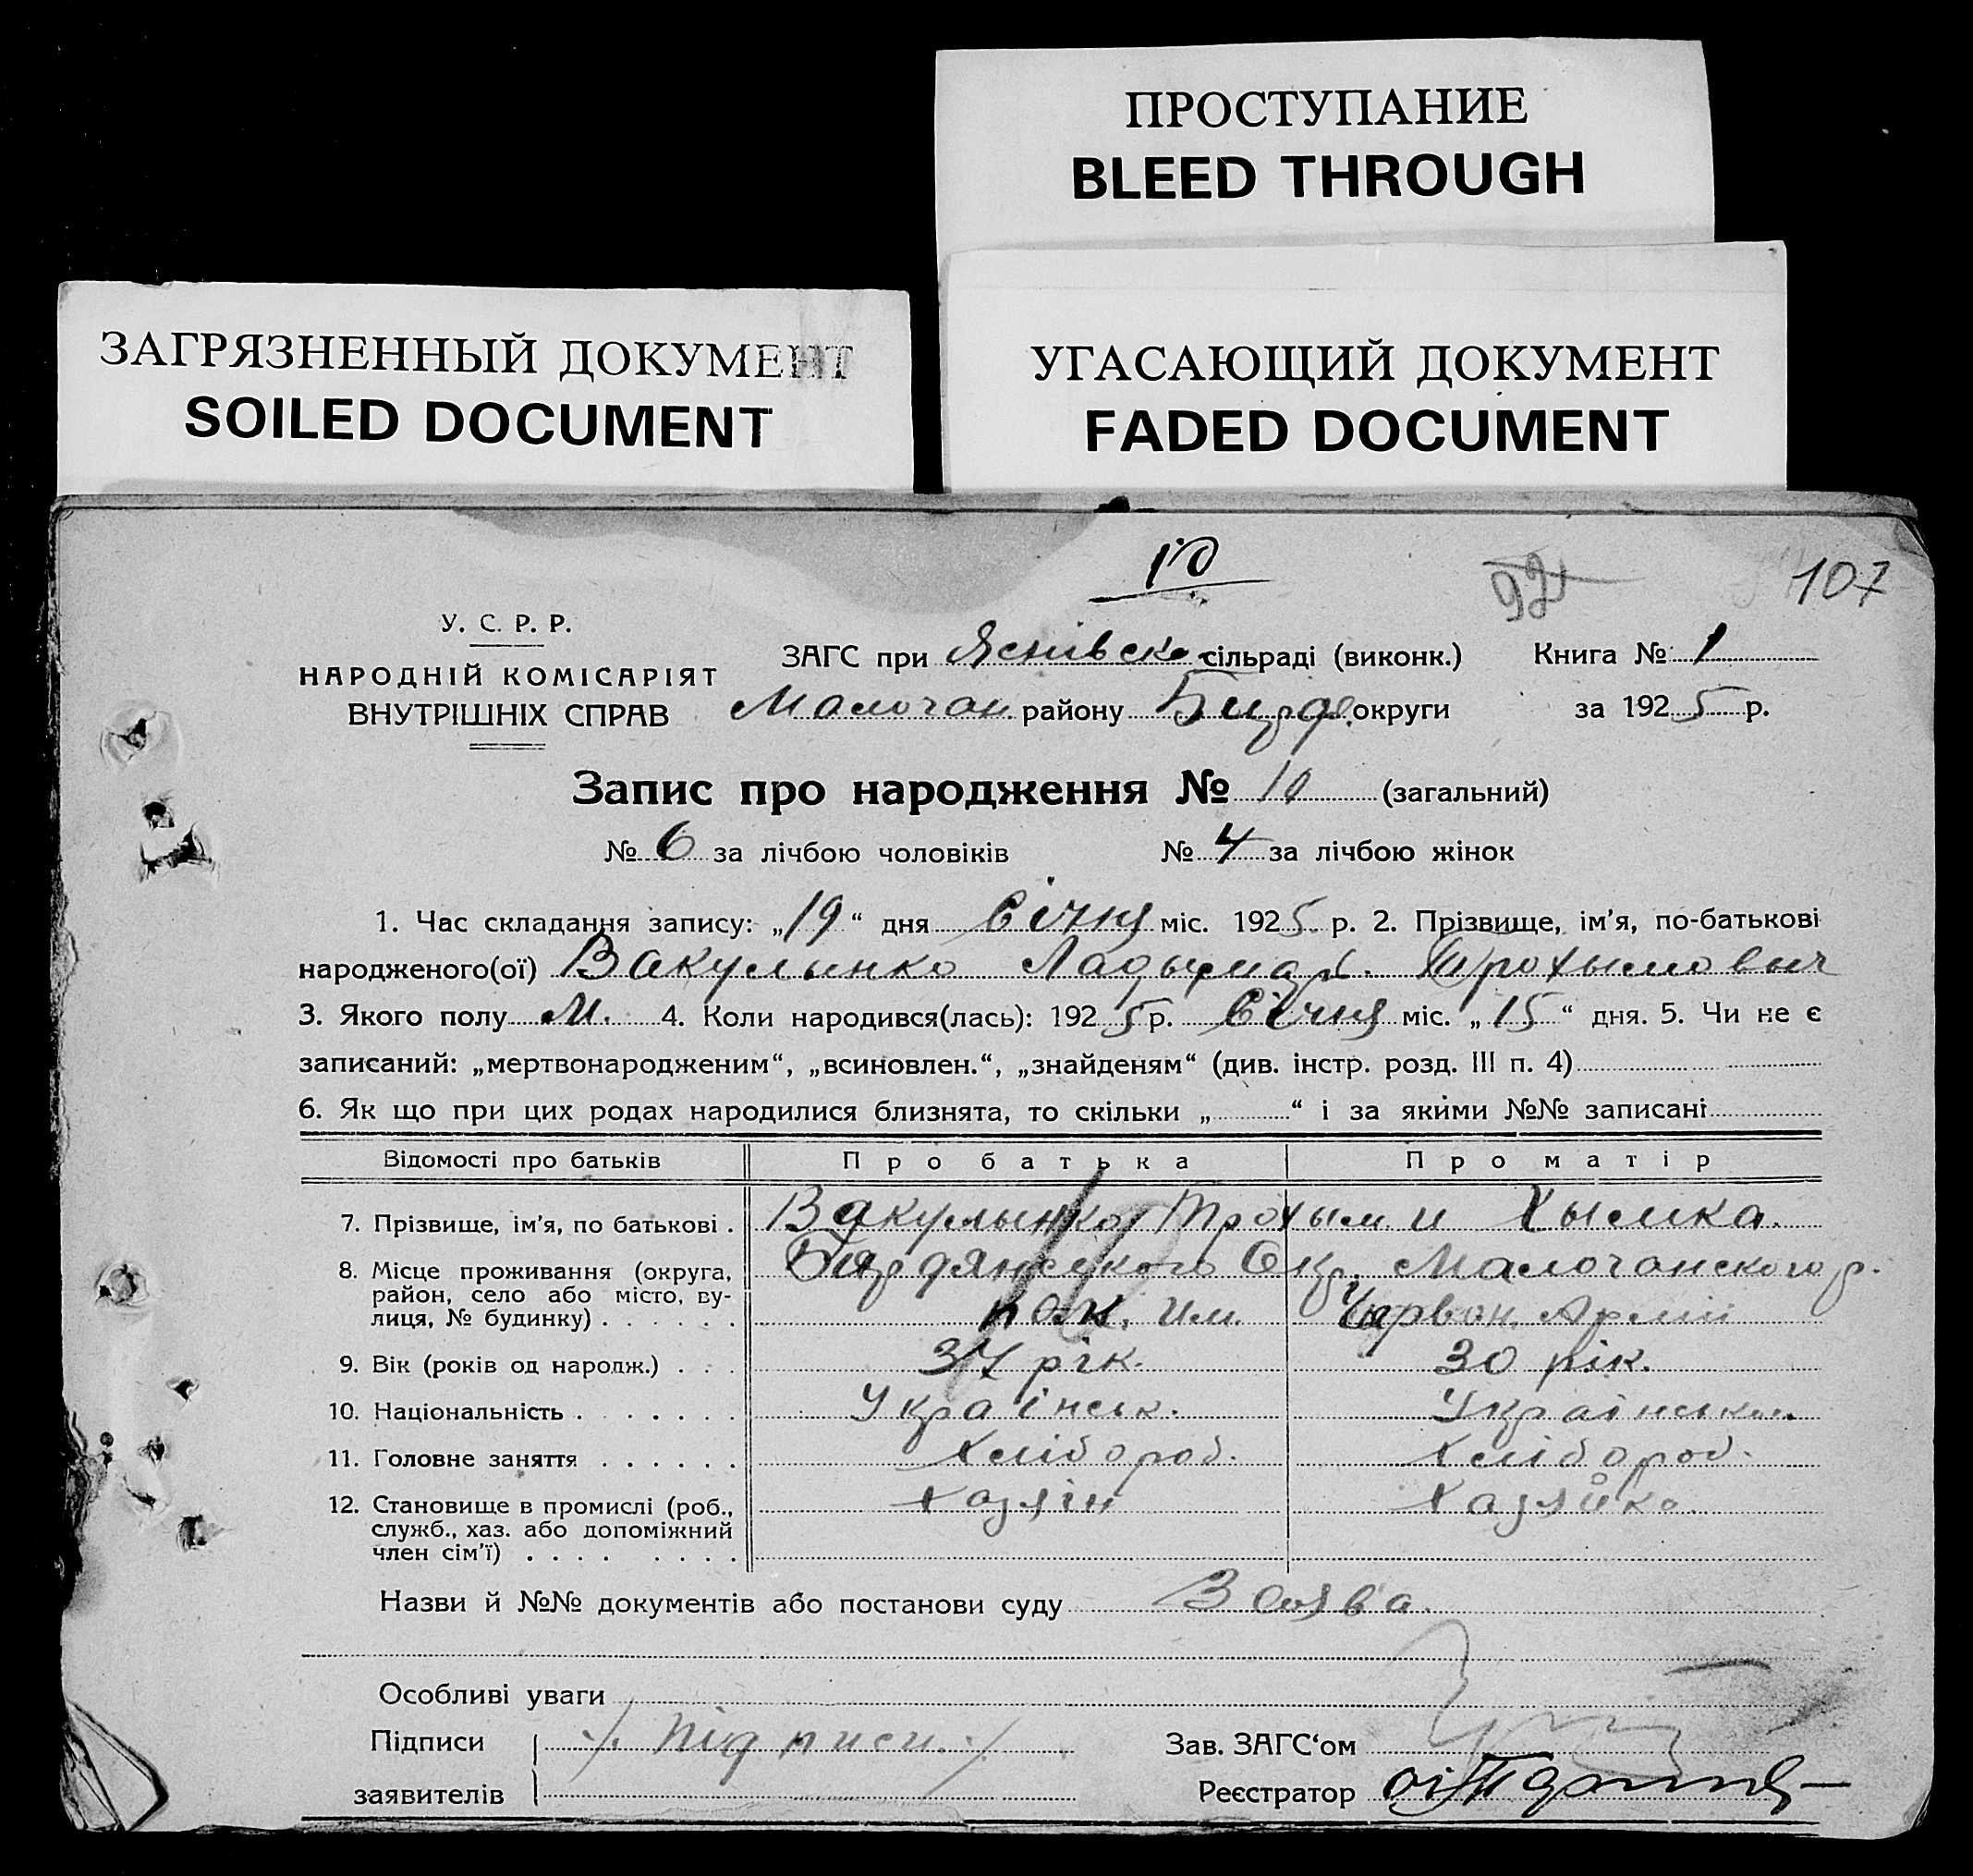 ПРОСТУПАНИЕ
BLEED THROUGH
ЗАГРЯЗНЕННЫЙ ДОКУМЕНТ
SOILED DOCUMENT
УГАСАЮЩИЙ ДОКУМЕНТ
FADED DOCUMENT
10
92
107
У. С. Р. Р.
НАРОДНІЙ КОМІСАРІЯТ
ВНУТРІШНІХ СПРАВ
ЗАГС при Яснівско сільраді (виконк.) Книга № 1
Малочан. району Бирд. округи за 1925 р.
Запис про народження № 10 (загальний)
№ 6 за лічбою чоловіків № 4 за лічбою жінок
1. Час складання запису: „19“ дня Січня міс. 1925 р. 2. Прізвище, ім'я, по-батькові
народженого(ої) Вакулынко Трохымович
3. Якого полу М. 4. Коли народився(лась): 1925 р. Січня міс. „15“ дня. 5. Чи не є
записаний: „мертвонародженим“, „всиновлен.“, „знайденям“ (див. інстр. розд. III п. 4)
6. Як що при цих родах народилися близнята, то скільки „ “ і за якими №№ записані
Відомості про батьків Про батька Про матір
7. Прізвище, ім'я, по батькові . Вакулынко Трохым и Хымка.
8. Місце проживання (округа, район, село або місто, вулиця, № будинку) . . . . . . Бирдянського Окр. Малочанского р.
кол. им. Чырвон. Армії
9. Вік (років од народж.) . . . 37 рік. 30 рік.
10. Національність . . . . . . . Українськ. Українськ.
11. Головне заняття . . . . . . Хлібороб. Хлібороб.
12. Становище в промислі (роб., служб., хаз. або допоміжний член сім'ї) . . . . . . . . Хазяін Хазяйка
Назви й №№ документів або постанови суду Заява.
Особливі уваги
Підписи
заявителів
/. підписи. /.
Зав. ЗАГС'ом
Реєстратор